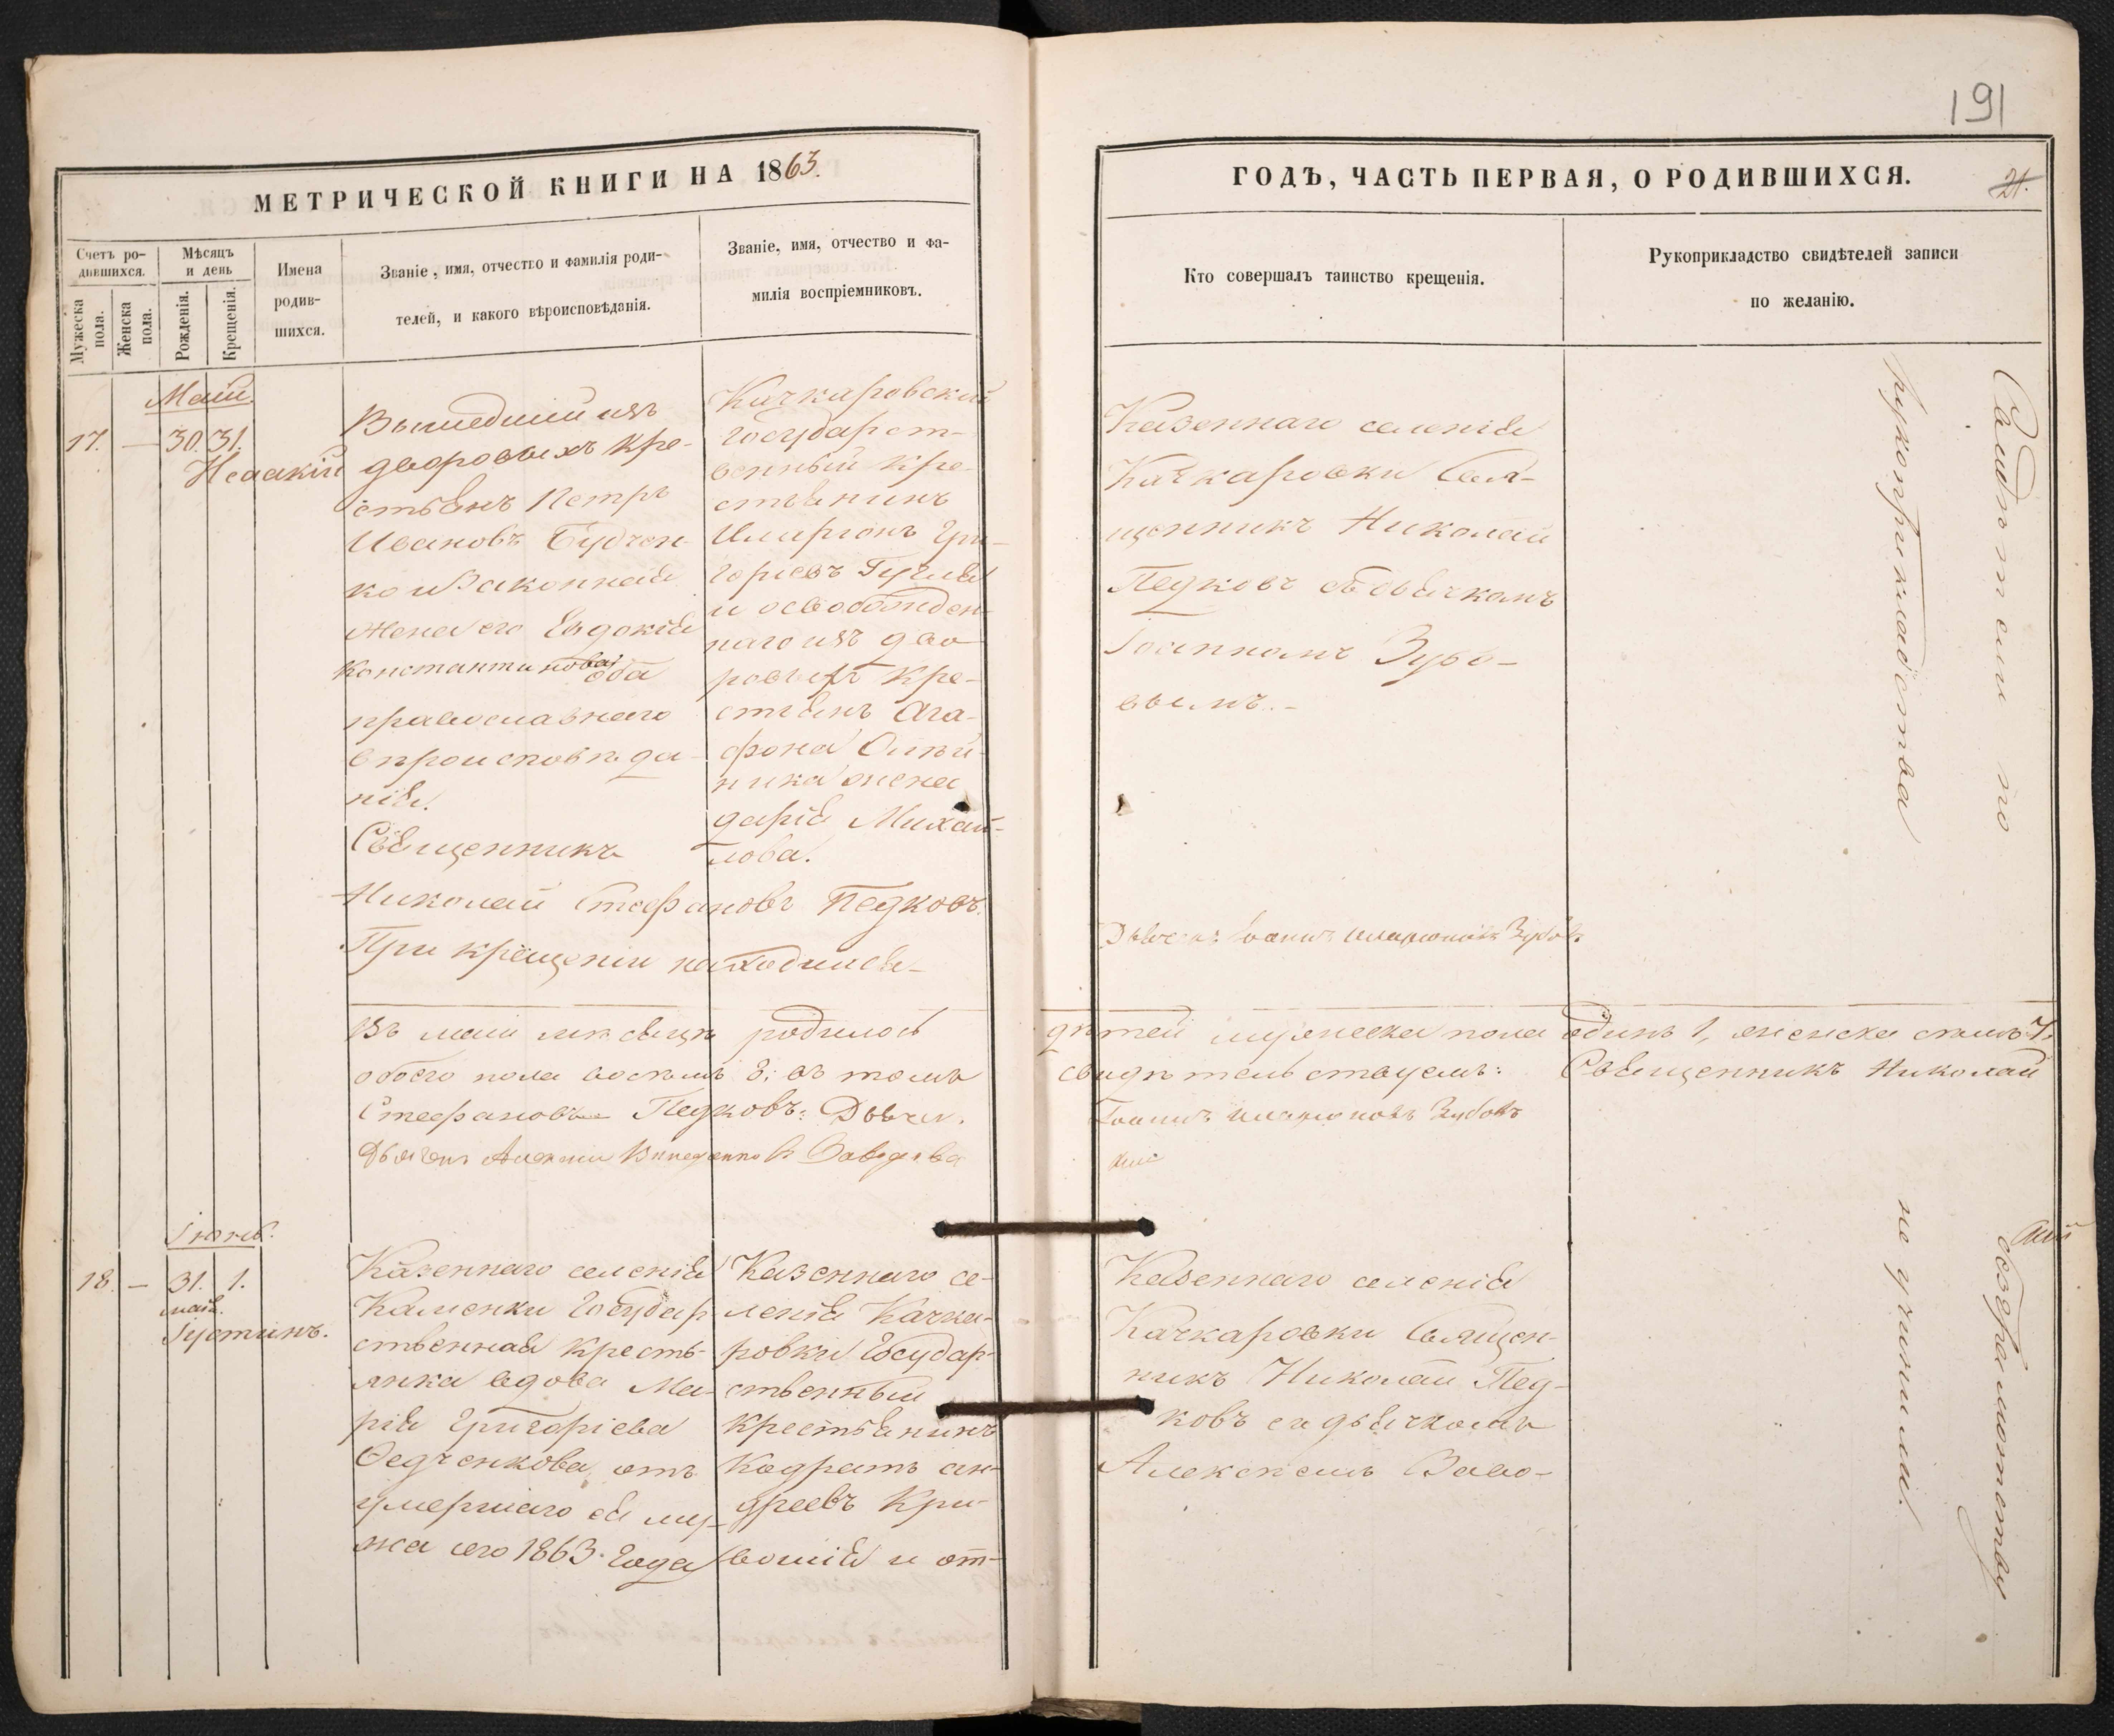 191
МЕТРИЧЕСКОЙ КНИГИ НА 1863.
ГОДЪ, ЧАСТЬ ПЕРВАЯ, О РОДИВШИХСЯ.
21.
Счетъ ро-
дившихся.
Мужеска пола.
Женска пола.
Мѣсяцъ
и день
Рожденія.
Крещенія.
Имена
родив-
шихся.
Званіе, имя, отчество и фамилія роди-
телей, и какого вѣроисповѣданія.
Званіе, имя, отчество и фа-
милія воспріемниковъ.
Кто совершалъ таинство крещенія.
Рукоприкладство свидѣтелей записи
по желанію.
Маій.
17. — 30. 31.
Исаакій
Вышедшій изъ
дворовыхъ кре-
стьянъ Петръ
Ивановъ Будчен-
ко и Законная
жена его Евдокія
Константинова оба
православнаго
вѣроисповѣда-
нія.
Священникъ
Николай Стефановъ Педковъ.
При крещеніи находились
Качкаровскій
государст-
венный кре-
стьянинъ
Иларіонъ Гри-
горіевъ
и освобожден-
наго изъ дво
ровыхъ кре-
стьянъ Ага-
фона Олѣй-
ника жена
дарія Михай-
лова.
Казеннаго селенія
Качкаровки Свя-
щенникъ Николай
Педковъ съ дьячкомъ
Іоанномъ Зубо-
вымъ.
Дьячекъ Іоаннъ Иларіоновъ Зубовъ
Свидѣтели по
рукоприкладства
Въ маіи мѣсяцѣ родилось дѣтей мужеска пола одинъ 1, женска семь 7.
обоего пола восемь 8; въ томъ свидѣтельствуемъ: Священникъ Николай
Стефановъ Педковъ: Дьячек. Іоаннъ Иларіоновъ Зубовъ
Дьячекъ Алексій
Іюнь.
18. — 31. 1.
маія.
Іустинъ.
Казеннаго селенія
Каменки Государ
ственная кресть-
янка вдова Ма-
рія Григоріева
Ѳедченкова, отъ
умершаго ея му-
жа сего 1863. года
Казеннаго се-
ленія Качка-
ровки Государ-
ственный
крестьянинъ
Кодратъ ан-
дреевъ Кри-
вошія и от-
Казеннаго селенія
Качкаровки Священ-
никъ Николай Пед-
ковъ съ дьячкомъ
Алексѣемъ Заво-
безграмотству
не учинили.